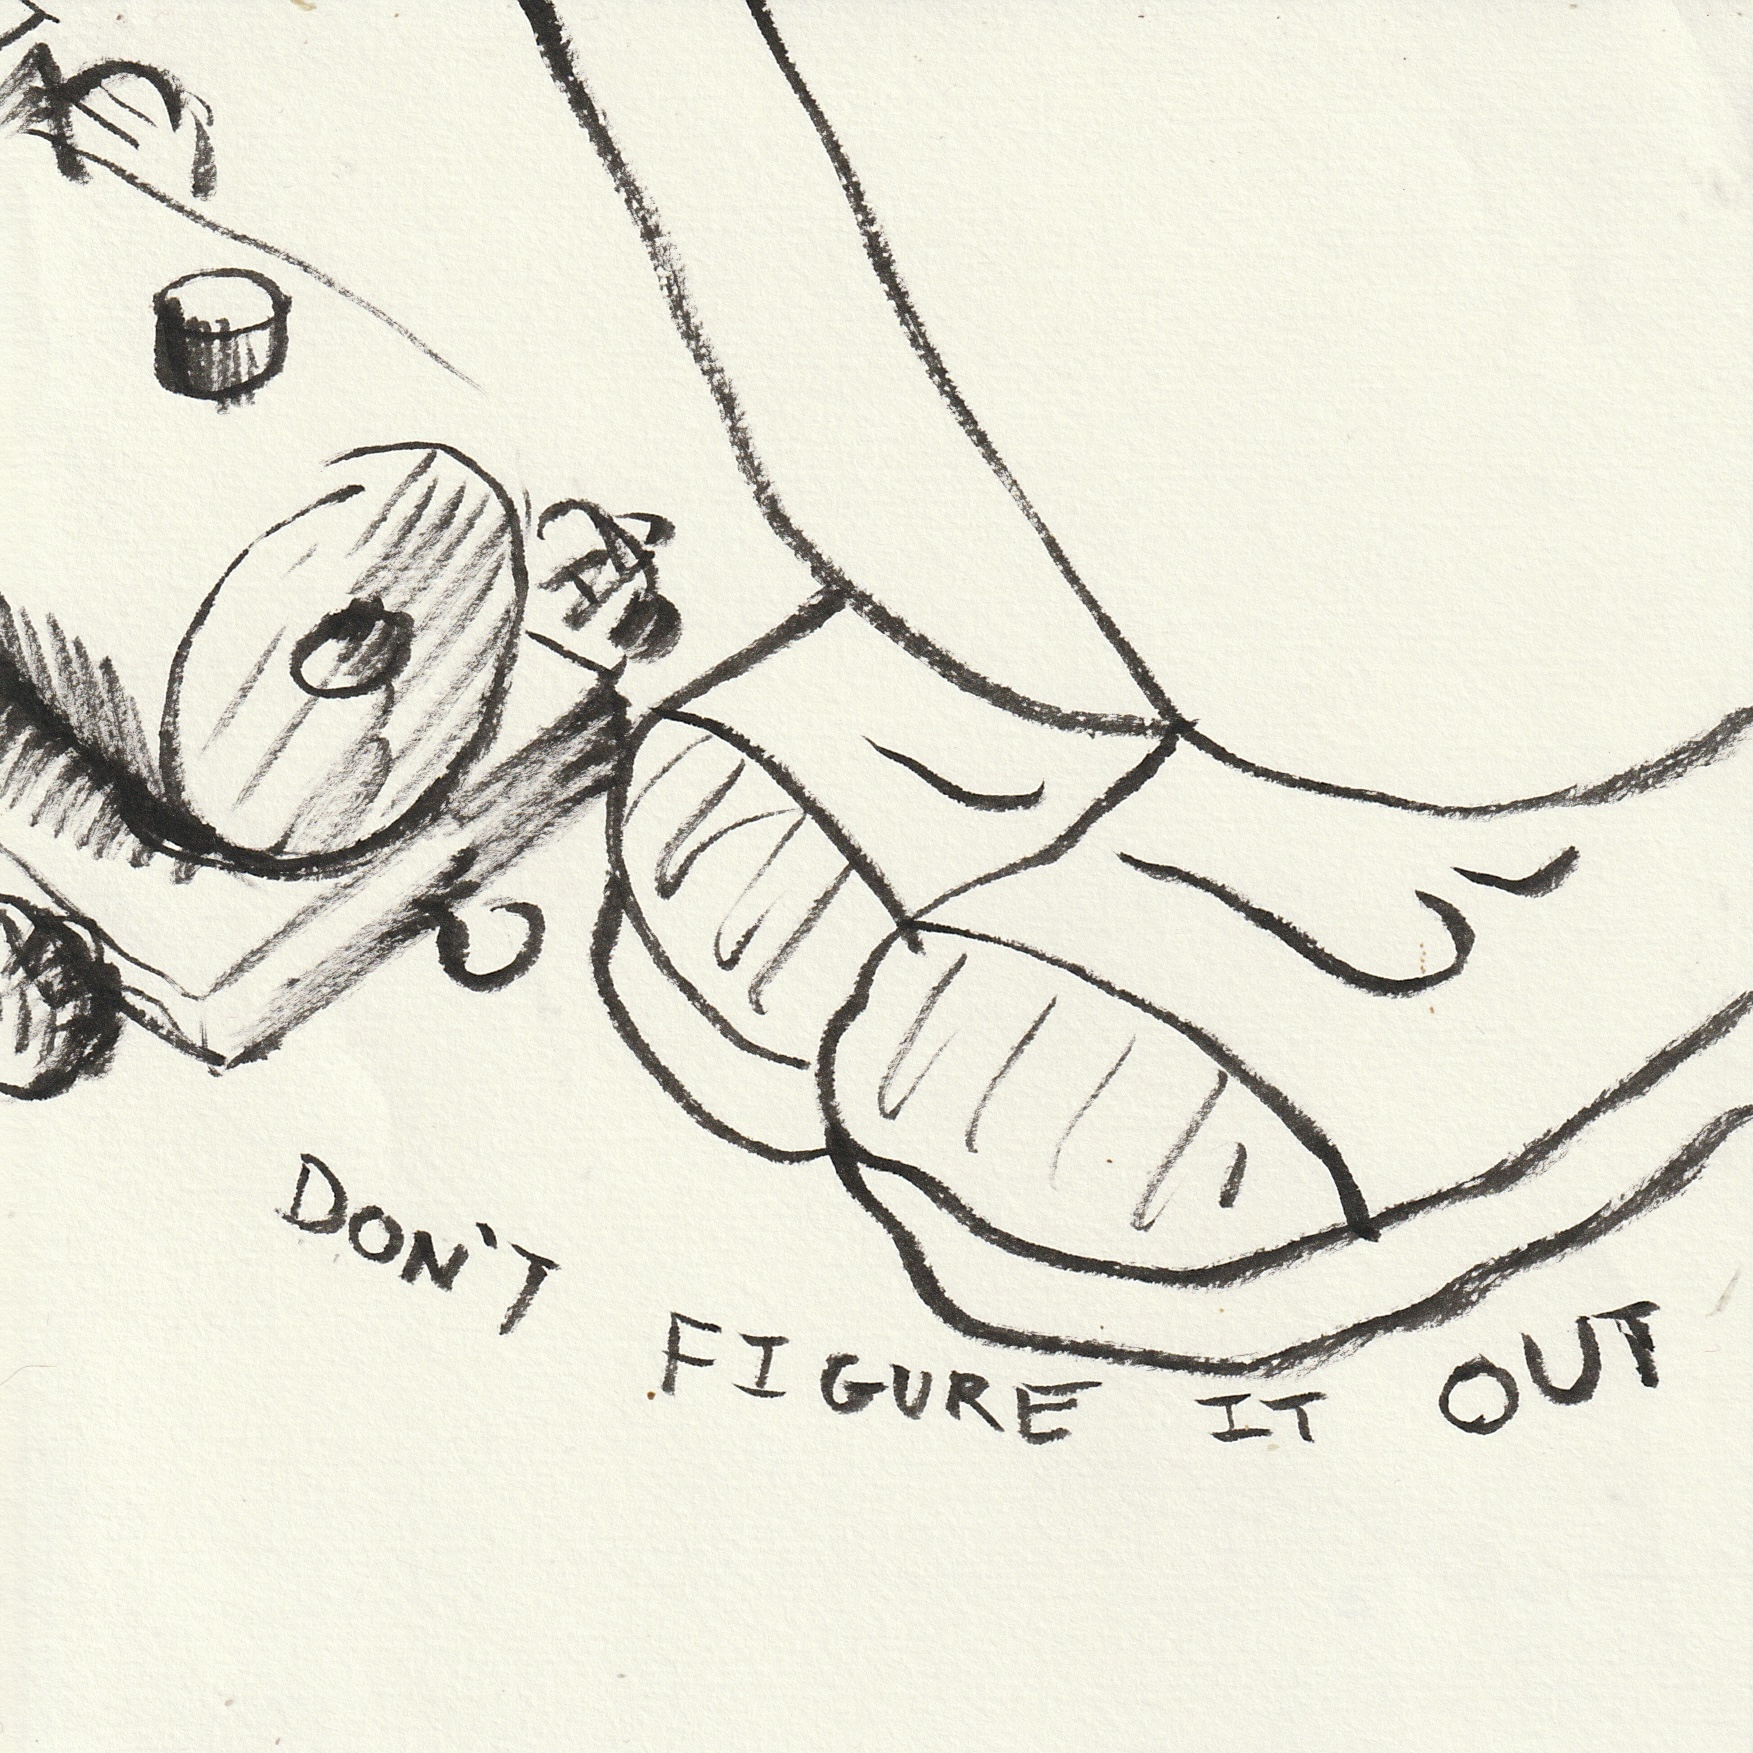 DON'T FIGURE IT OUT